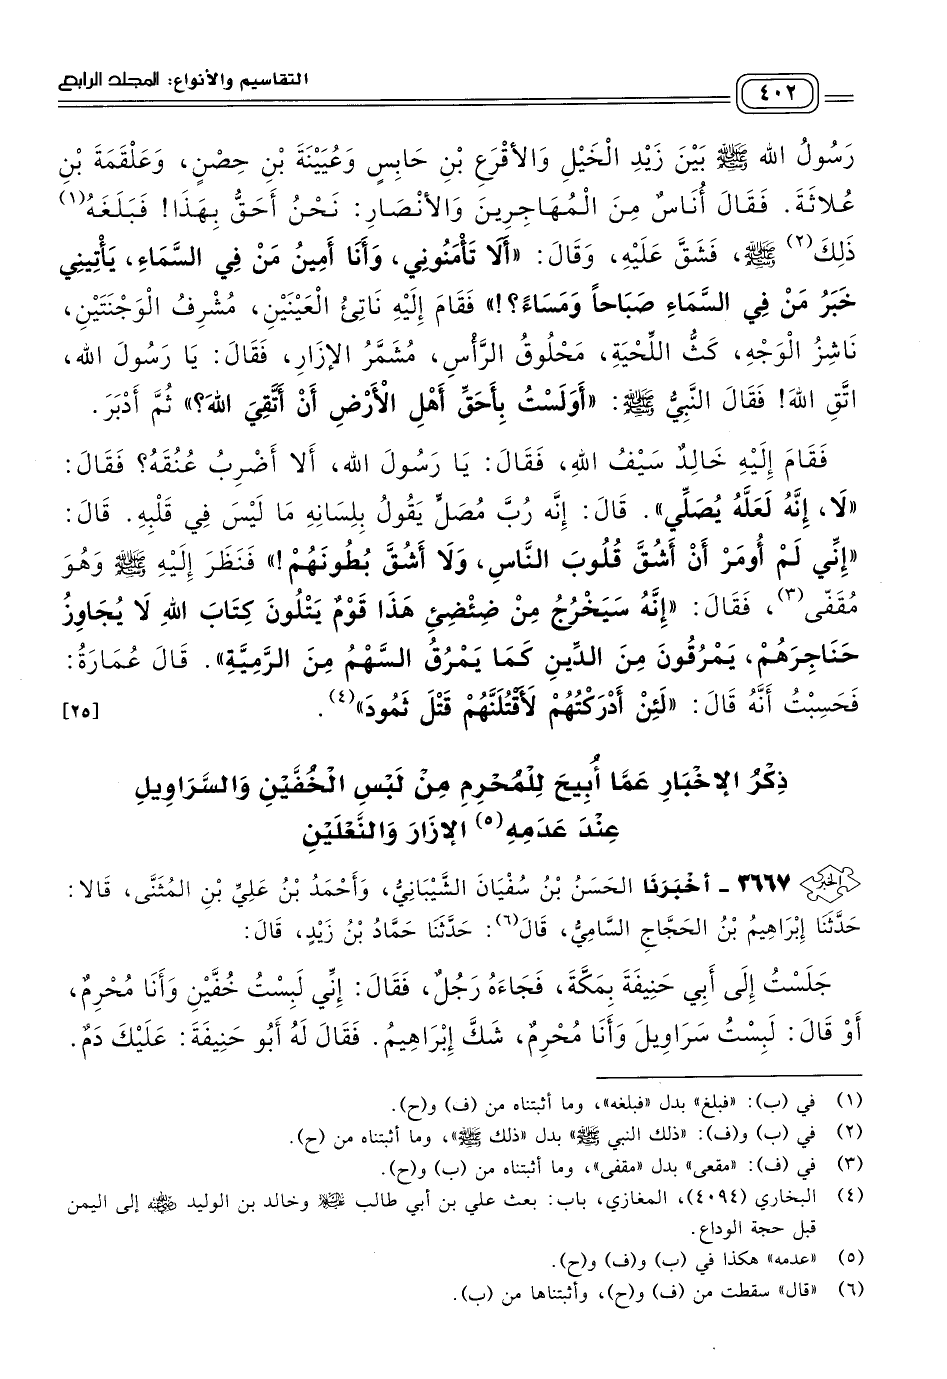 ٤٠٢ التقاسيم والأنواع: المجلد الرابع
رَسُولُ اللهِ ﷺ بَيْنَ زَيْدِ الْخَيْلِ وَالأَقْرَعِ بْنِ حَابِسٍ وَعُيَيْنَةَ بْنِ حِصْنٍ، وَعَلْقَمَةَ بْنِ
عُلاثَةَ. فَقَالَ أُنَاسٌ مِنَ الْمُهَاجِرِينَ وَالأَنْصَارِ: نَحْنُ أَحَقُّ بِهَذَا! فَبَلَغَهُ(١)
ذَلِكَ(٢) ﷺ، فَشَقَّ عَلَيْهِ، وَقَالَ: «أَلَا تَأْمَنُونِي، وَأَنَا أَمِينُ مَنْ فِي السَّمَاءِ، يَأْتِينِي
خَبَرُ مَنْ فِي السَّمَاءِ صَبَاحاً وَمَسَاءً؟!» فَقَامَ إِلَيْهِ نَاتِئُ الْعَيْنَيْنِ، مُشْرِفُ الْوَجْنَتَيْنِ،
نَاشِزُ الْوَجْهِ، كَثُّ اللِّحْيَةِ، مَحْلُوقُ الرَّأْسِ، مُشَمَّرُ الإِزَارِ، فَقَالَ: يَا رَسُولَ اللهِ،
اتَّقِ اللهَ! فَقَالَ النَّبِيُّ ﷺ: «أَوَلَسْتُ بِأَحَقِّ أَهْلِ الأَرْضِ أَنْ أَتَّقِيَ اللهَ؟» ثُمَّ أَدْبَرَ.
فَقَامَ إِلَيْهِ خَالِدٌ سَيْفُ اللهِ، فَقَالَ: يَا رَسُولَ اللهِ، أَلا أَضْرِبُ عُنُقَهُ؟ فَقَالَ:
«لَا، إِنَّهُ لَعَلَّهُ يُصَلِّي». قَالَ: إِنَّه رُبَّ مُصَلٍّ يَقُولُ بِلِسَانِهِ مَا لَيْسَ فِي قَلْبِهِ. قَالَ:
«إِنِّي لَمْ أُومَرْ أَنْ أَشُقَّ قُلُوبَ النَّاسِ، وَلَا أَشُقَّ بُطُونَهُمْ!» فَنَظَرَ إِلَيْهِ ﷺ وَهُوَ
مُقَفّى(٣)، فَقَالَ: «إِنَّهُ سَيَخْرُجُ مِنْ ضِئْضِئِ هَذَا قَوْمٌ يَتْلُونَ كِتَابَ اللهِ لَا يُجَاوِزُ
حَنَاجِرَهُمْ، يَمْرُقُونَ مِنَ الدِّينِ كَمَا يَمْرُقُ السَّهْمُ مِنَ الرَّمِيَّةِ». قَالَ عُمَارَةُ:
فَحَسِبْتُ أَنَّهُ قَالَ: «لَئِنْ أَدْرَكْتُهُمْ لَأَقْتُلَنَّهُمْ قَتْلَ ثَمُودَ»(٤). [٢٥]
ذِكْرُ الإِخْبَارِ عَمَّا أُبِيحَ لِلْمُحْرِمِ مِنْ لَبْسِ الْخُفَّيْنِ وَالسَّرَاوِيلِ
عِنْدَ عَدَمِهِ(٥) الإِزَارَ وَالنَّعْلَيْنِ
الخبر ٣٦٦٧ - أَخْبَرَنَا الحَسَنُ بْنُ سُفْيَانَ الشَّيْبَانِيُّ، وَأَحْمَدُ بْنُ عَلِيِّ بْنِ المُثَنَّى، قَالا:
حَدَّثَنَا إِبْرَاهِيمُ بْنُ الحَجَّاجِ السَّامِيُّ، قَالَ(٦): حَدَّثَنَا حَمَّادُ بْنُ زَيْدٍ، قَالَ:
جَلَسْتُ إِلَى أَبِي حَنِيفَةَ بِمَكَّةَ، فَجَاءَهُ رَجُلٌ، فَقَالَ: إِنِّي لَبِسْتُ خُفَّيْنِ وَأَنَا مُحْرِمٌ،
أَوْ قَالَ: لَبِسْتُ سَرَاوِيلَ وَأَنَا مُحْرِمٌ، شَكَّ إِبْرَاهِيمُ. فَقَالَ لَهُ أَبُو حَنِيفَةَ: عَلَيْكَ دَمٌ.
(١) في (ب): «فبلغ» بدل «فبلغه»، وما أثبتناه من (ف) و(ح).
(٢) في (ب) و(ف): «ذلك النبي ﷺ» بدل «ذلك ﷺ»، وما أثبتناه من (ح).
(٣) في (ف): «مقعى» بدل «مقفى»، وما أثبتناه من (ب) و(ح).
(٤) البخاري (٤٠٩٤)، المغازي، باب: بعث علي بن أبي طالب عليه السلام وخالد بن الوليد رضي الله عنه إلى اليمن
قبل حجة الوداع.
(٥) «عدمه» هكذا في (ب) و(ف) و(ح).
(٦) «قال» سقطت من (ف) و(ح)، وأثبتناها من (ب).